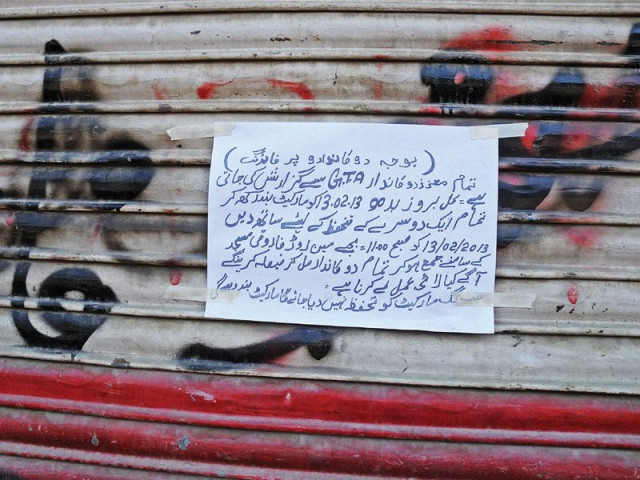 ( بوجہ دوکانوارو پر فائرنگ )
تمام معزز دوکاندار G.T.A سے گزارش کی جاتی
ہے۔ کل بروز 13.02.13 کو مارکیٹ بند رکھ کر
تمام ایک دوسرے کے تحفظ کے لیئے ساتھ دیں
13/02/2013 کو صبح 11:00 بجے مین روڈ فاروقی مسجد
کے سامنے جمع ہوکر تمام دوکاندار مل کر فیصلہ کرینگے
آگے کیا لائحہ عمل طے کرنا ہے
جب تک مارکیٹ کو تحفظ نہیں دیا جائے گا مارکیٹ بند رہے گی